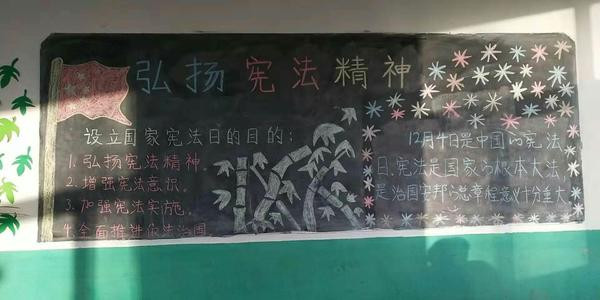 弘扬宪法精神
设立国家宪法日的目的：
1.弘扬宪法精神
2.增强宪法意识。
3.加强宪法实施。
4.全面推进依法治国
12月4日是中国的宪法
日、宪法是国家的根本大法
是治国安邦的总章程意义十分重大